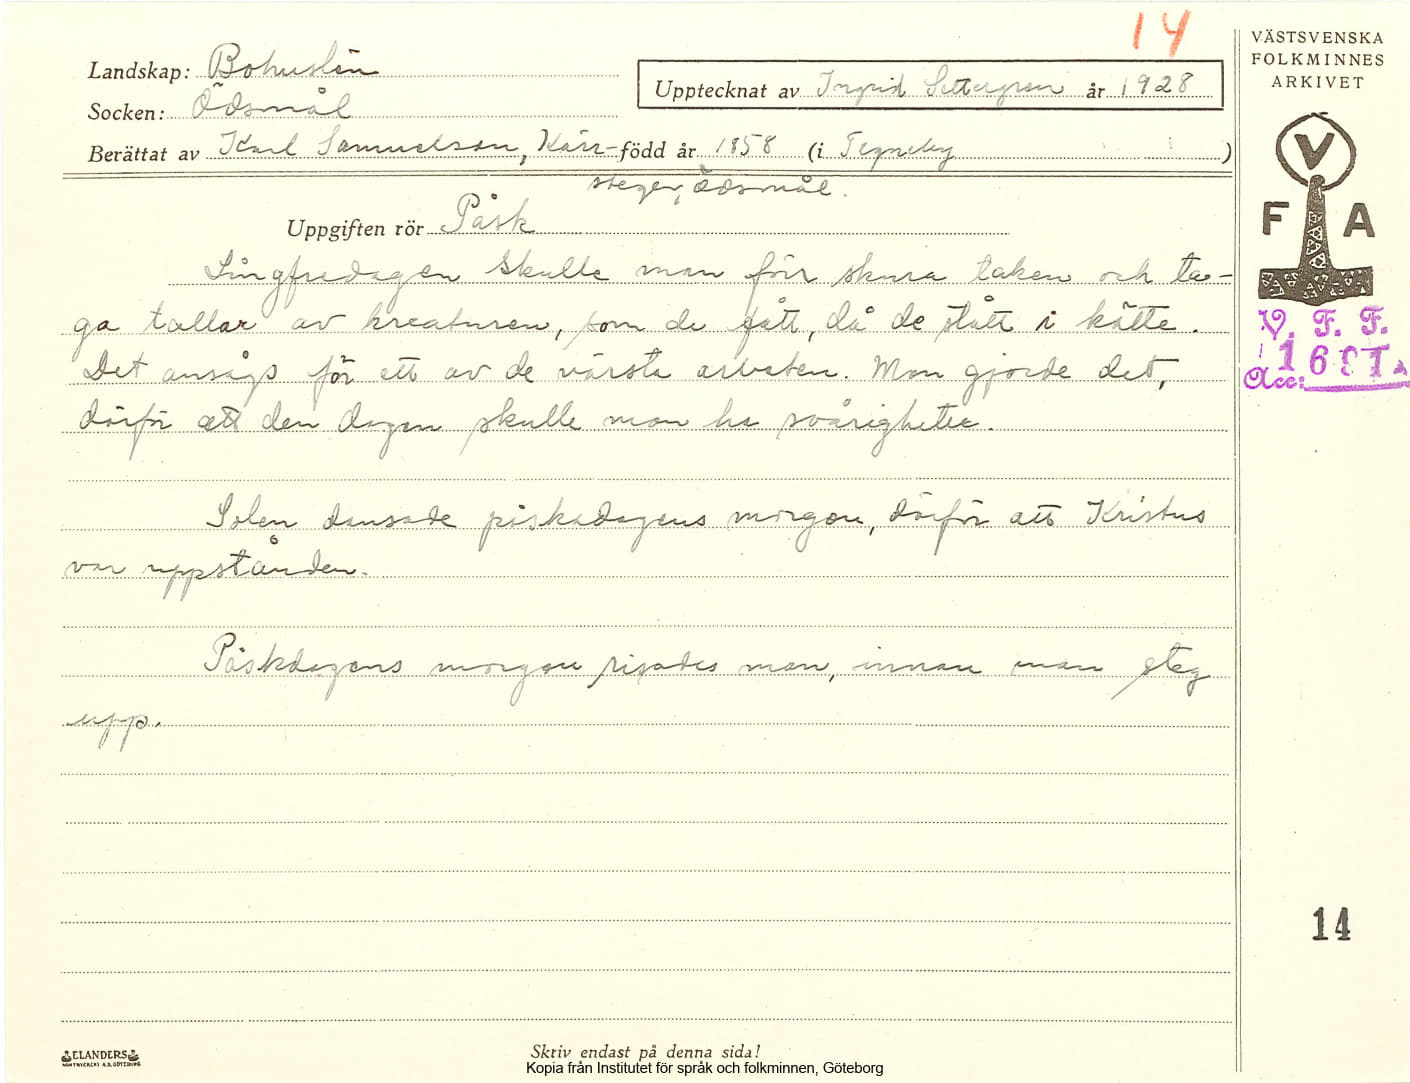 14
VÄSTSVENSKA
FOLKMINNES
ARKIVET
Landskap: Bohuslän
Upptecknat av Ingrid Settergren år 1928
Socken: Ödsmål
Berättat av Karl Samuelsson, Kärr- född år 1858 (i Tegneby )
steger, Ödsmål.
Uppgiften rör Påsk
V
F A
Långfredagen skulle man förr skura taken och ta-
ga tallar av kreaturen, som de fått, då de stått i kätte.
Det ansågs för ett av de värsta arbeten. Man gjorde det,
därför att den dagen skulle man ha svårigheter.
V. F. F.
Acc:
Solen dansade påskadagens morgon, därför att Kristus
var uppstånden.
Påskdagens morgon risades man, innan man steg
upp.
14
ELANDERS
Skriv endast på denna sida!
Kopia från Institutet för språk och folkminnen, Göteborg